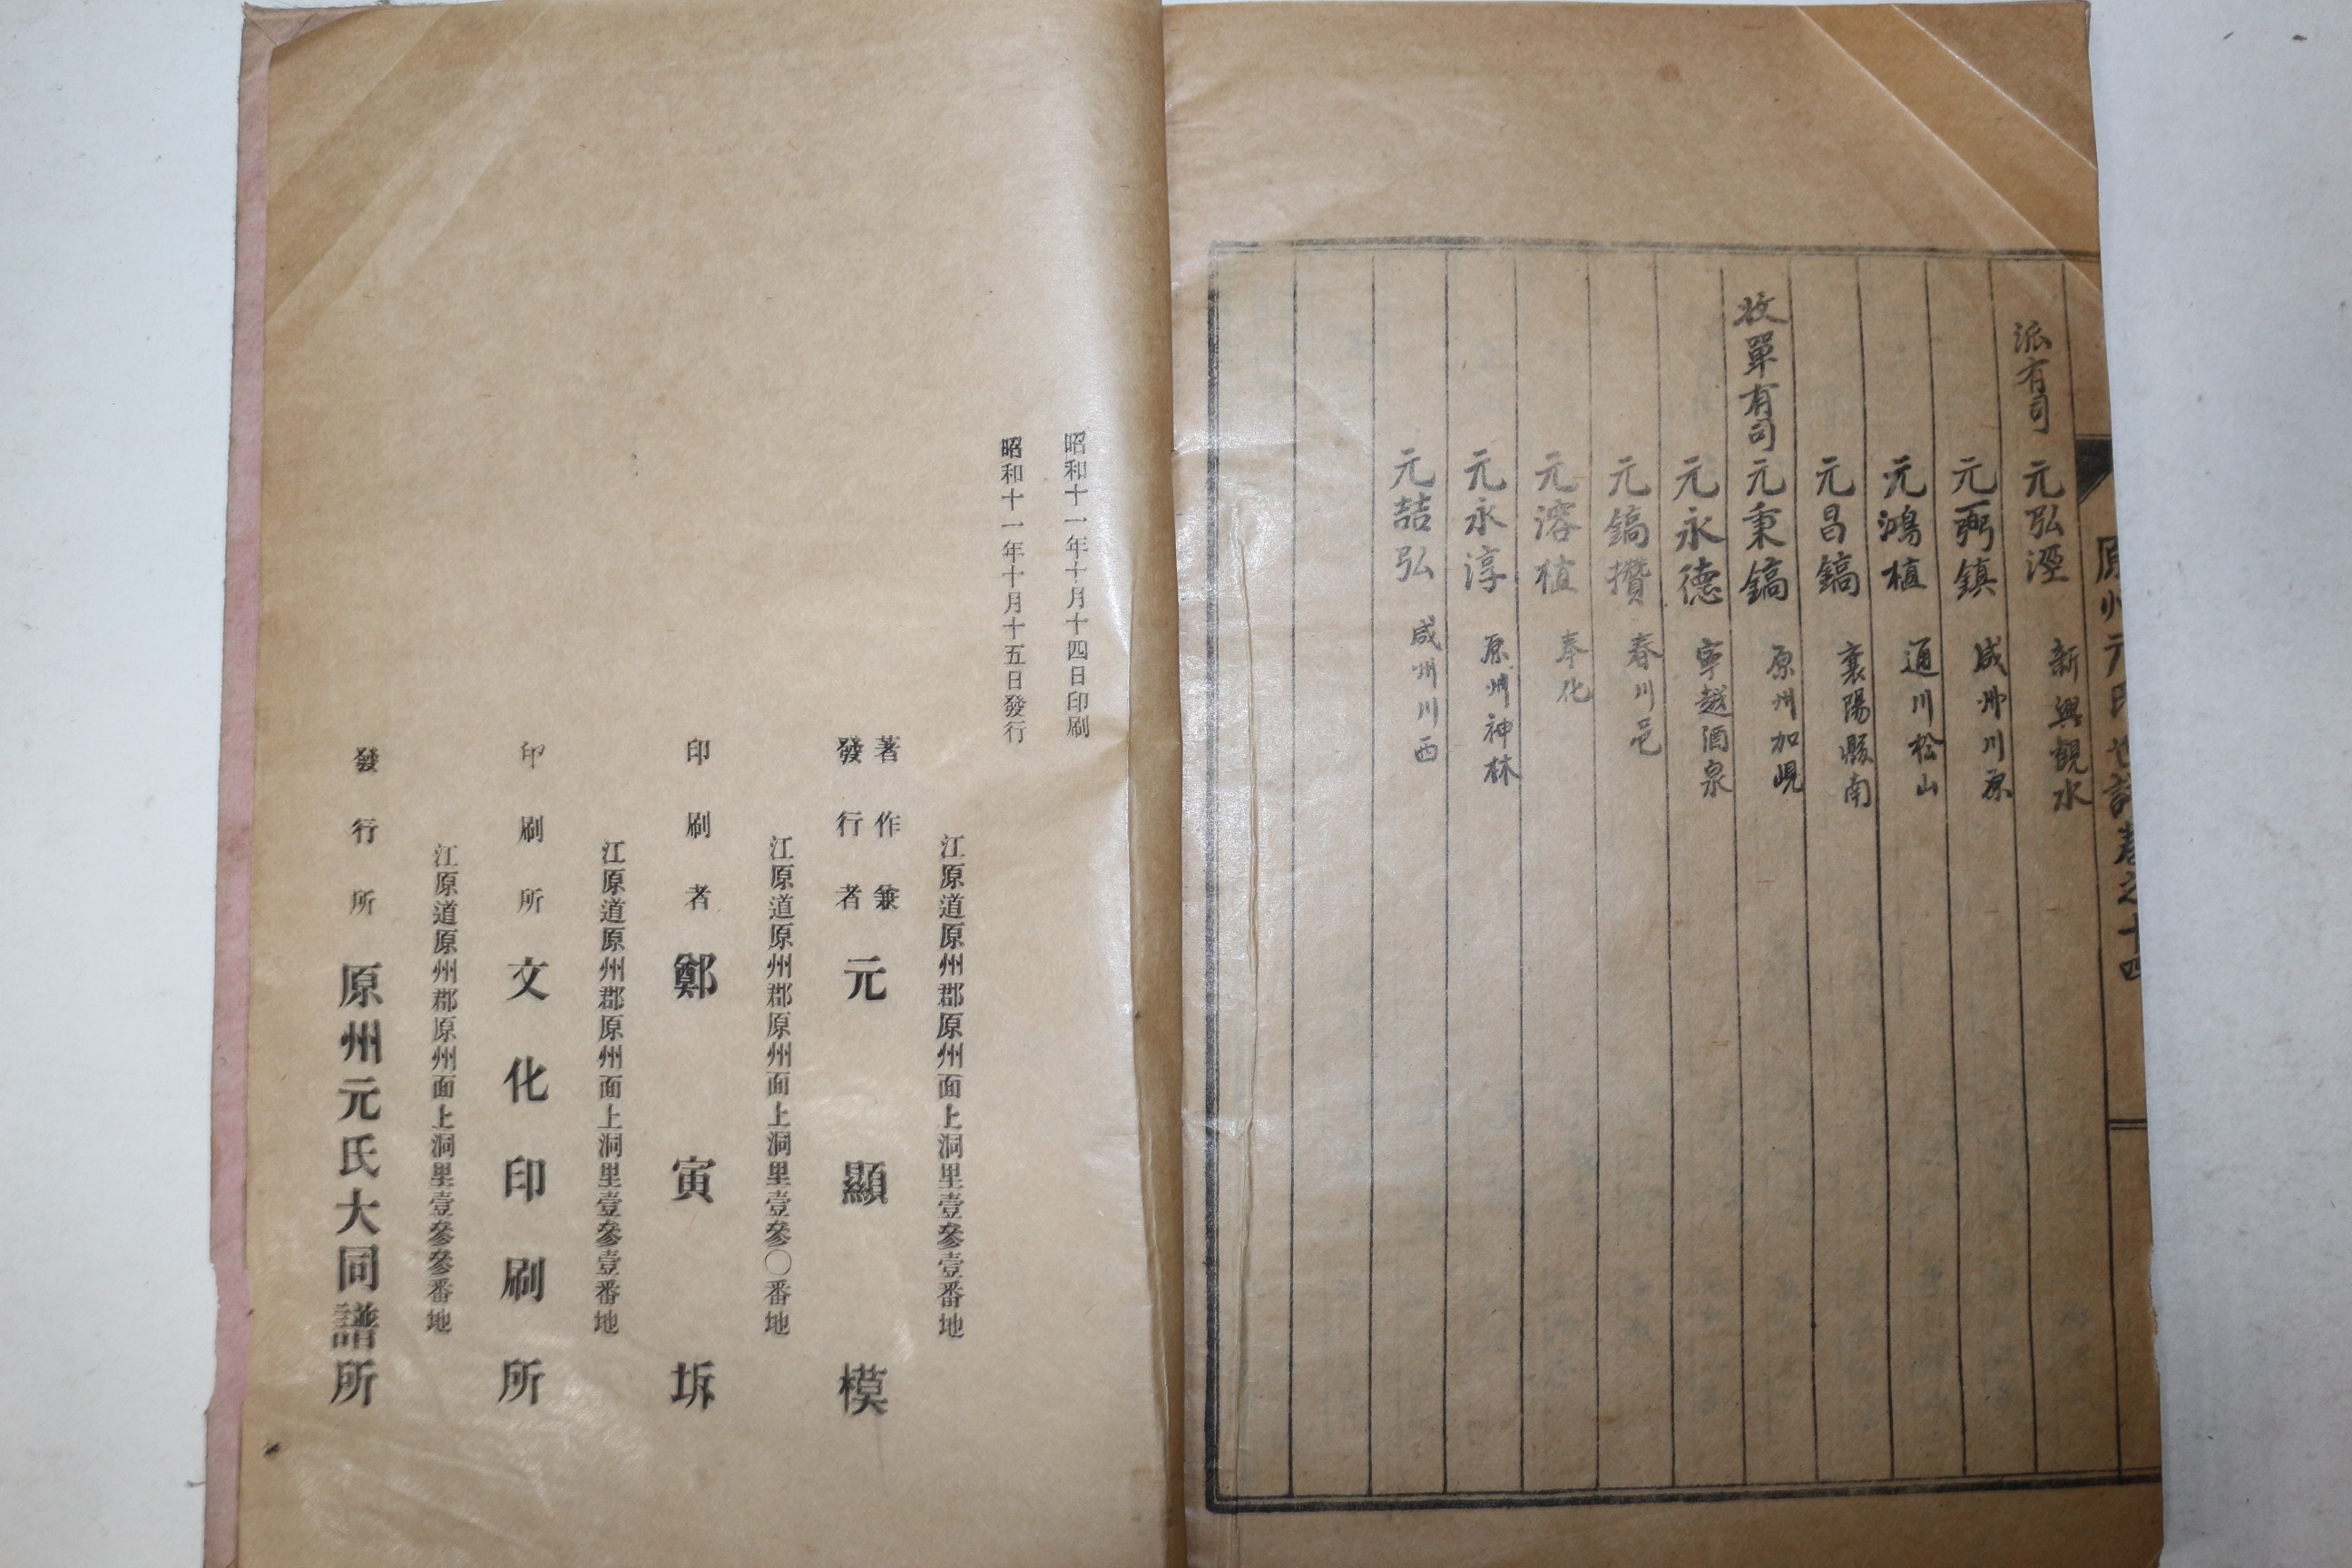 原州元氏世譜卷之十四
派有司 元弘溼 新興觀水
元弼鎮 咸州川原
元鴻植 通川松山
元昌鎬 襄陽縣南
收單有司 元秉鎬 原州加峴
元永德 寧越酒泉
元鎬攢 春川邑
元溶植 奉化
元永淳 原州神林
元喆弘 咸州川西
昭和十一年十月十四日印刷
昭和十一年十月十五日發行
江原道原州郡原州面上洞里壹參壹番地
著作兼
發行者 元顯模
江原道原州郡原州面上洞里壹參〇番地
印刷者 鄭寅坼
江原道原州郡原州面上洞里壹參壹番地
印刷所 文化印刷所
江原道原州郡原州面上洞里壹參參番地
發行所 原州元氏大同譜所